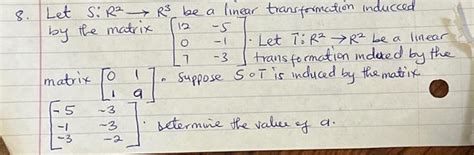 8. Let S: R² → R³ be a linear transformation induced
12 -5
by the matrix [ 0 -1 ]. Let T: R² → R² be a linear
7 -3 transformation induced by the
matrix [ 0 1 ]. Suppose S∘T is induced by the matrix
1 a
[ -5 -3
-1 -3 ]. Determine the value of a.
-3 -2